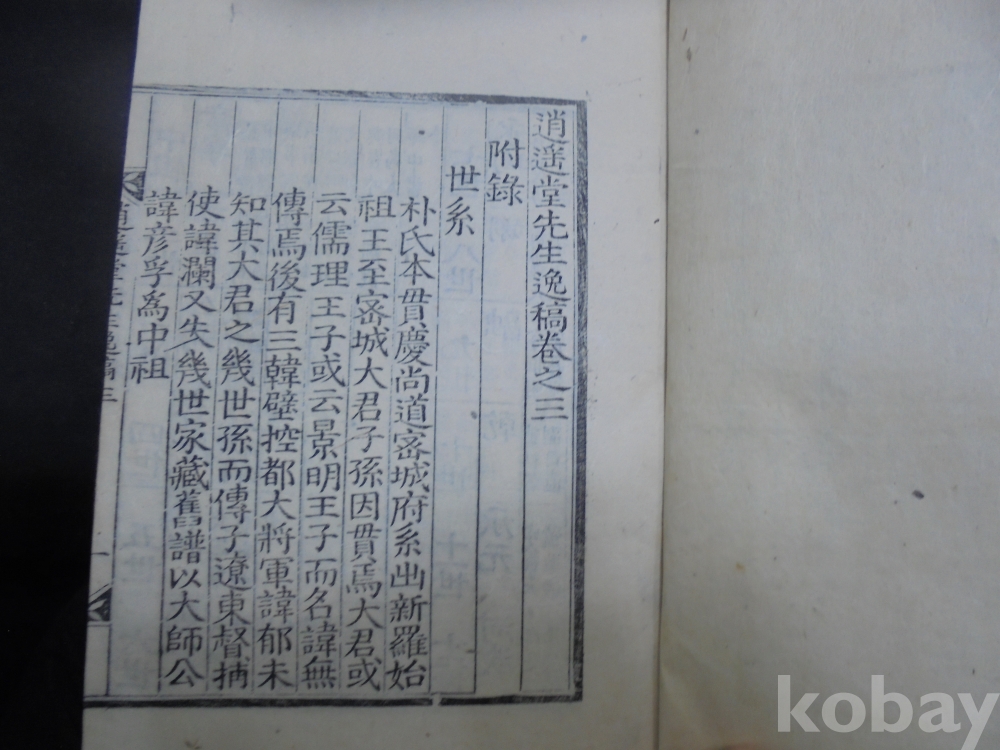 逍遥堂先生逸稿卷之三
附錄
世系
朴氏本貫慶尚道密城府系出新羅始
祖王至密城大君子孫因貫焉大君或
云儒理王子或云景明王子而名諱無
傳焉後有三韓壁控都大將軍諱郁未
知其大君之幾世孫而傳子遼東督捕
使諱瀾又失幾世家藏舊譜以大師公
諱彦孚為中祖
逍遥堂先生逸稿三
kobay